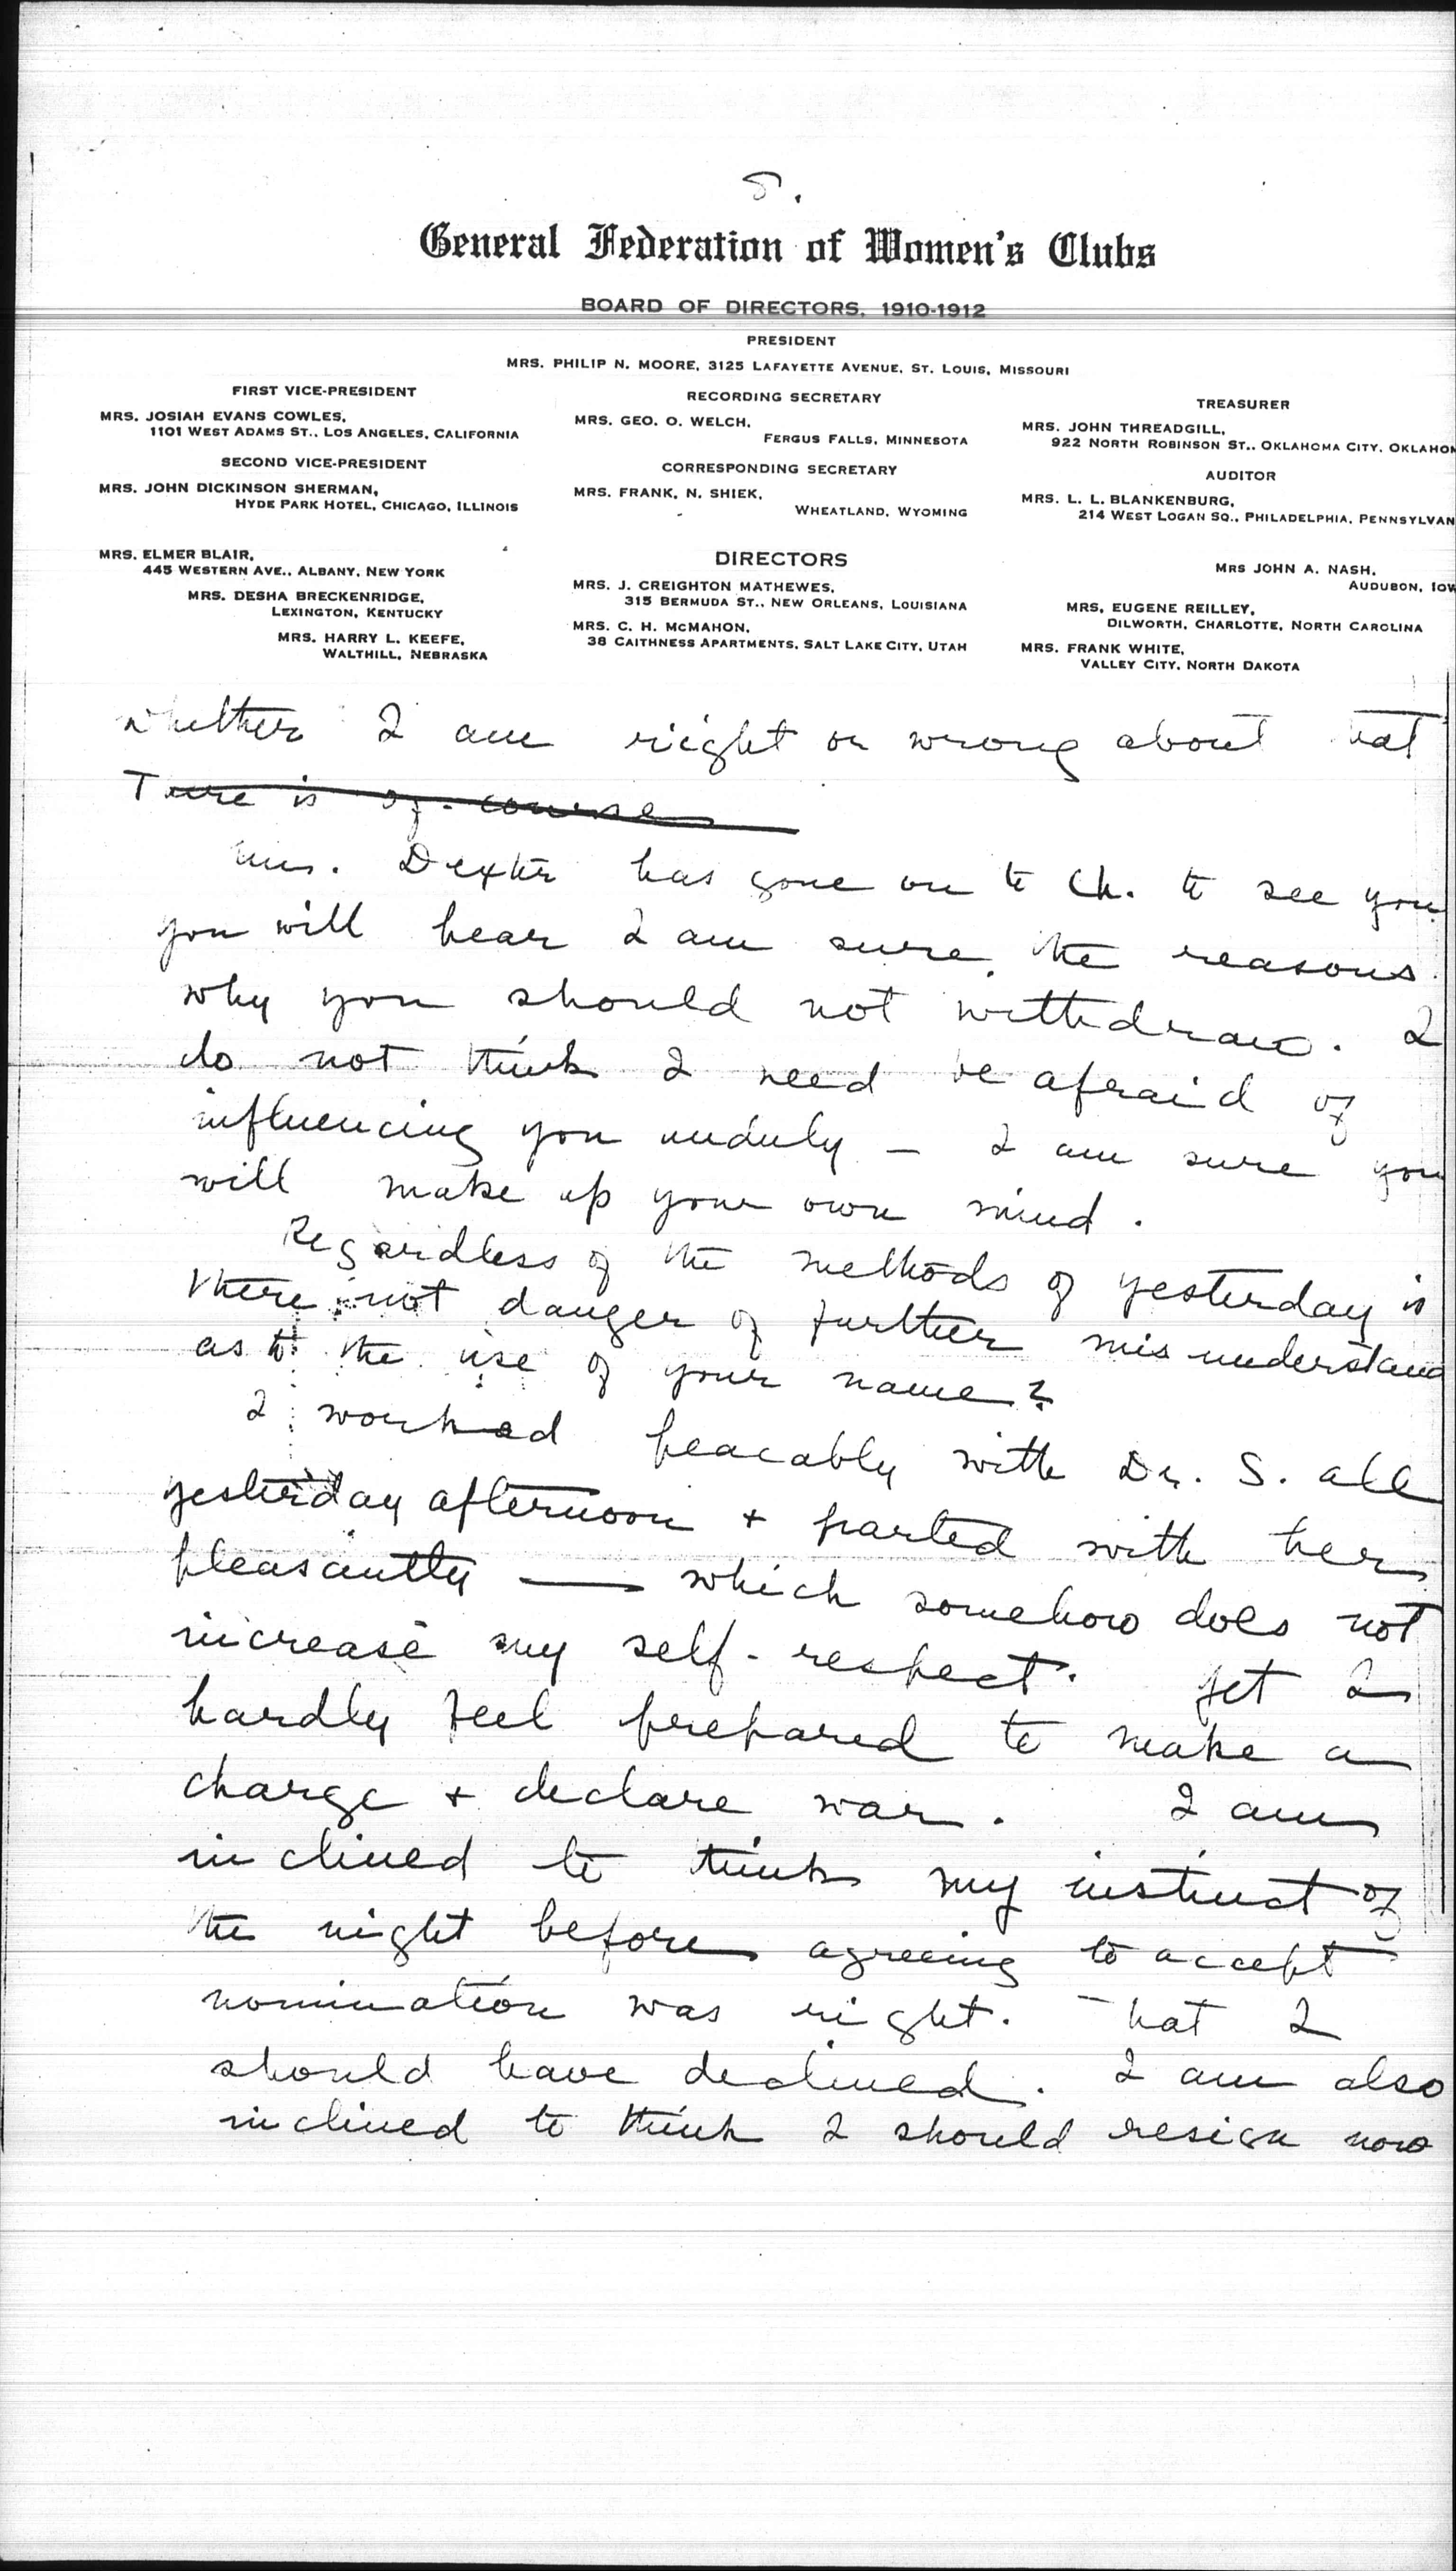 5.
General Federation of Women's Clubs
BOARD OF DIRECTORS, 1910-1912
PRESIDENT
MRS. PHILIP N. MOORE, 3125 LAFAYETTE AVENUE, ST. LOUIS, MISSOURI
FIRST VICE-PRESIDENT
MRS. JOSIAH EVANS COWLES,
1101 WEST ADAMS ST., LOS ANGELES, CALIFORNIA
SECOND VICE-PRESIDENT
MRS. JOHN DICKINSON SHERMAN,
HYDE PARK HOTEL, CHICAGO, ILLINOIS
RECORDING SECRETARY
MRS. GEO. O. WELCH,
FERGUS FALLS, MINNESOTA
CORRESPONDING SECRETARY
MRS. FRANK, N. SHIEK,
WHEATLAND, WYOMING
TREASURER
MRS. JOHN THREADGILL,
922 NORTH ROBINSON ST., OKLAHOMA CITY, OKLAHOM
AUDITOR
MRS. L. L. BLANKENBURG,
214 WEST LOGAN SQ., PHILADELPHIA, PENNSYLVAN
DIRECTORS
MRS. ELMER BLAIR,
445 WESTERN AVE., ALBANY, NEW YORK
MRS. DESHA BRECKENRIDGE,
LEXINGTON, KENTUCKY
MRS. HARRY L. KEEFE,
WALTHILL, NEBRASKA
MRS. J. CREIGHTON MATHEWES,
315 BERMUDA ST., NEW ORLEANS, LOUISIANA
MRS. C. H. MCMAHON,
38 CAITHNESS APARTMENTS, SALT LAKE CITY, UTAH
MRS JOHN A. NASH,
AUDUBON, IOW
MRS, EUGENE REILLEY,
DILWORTH, CHARLOTTE, NORTH CAROLINA
MRS. FRANK WHITE,
VALLEY CITY, NORTH DAKOTA
whether I am right or wrong about that
There is of course
Mrs. Dexter has gone on to Ch. to see you
you will hear I am sure, the reasons
why you should not withdraw. I
do not think I need be afraid of
influencing you unduly — I am sure you
will make up your own mind.
Regardless of the methods of yesterday is
there not danger of further misunderstand
as to the use of your name?
I worked peacably with Dr. S. all
yesterday afternoon + parted with her
pleasantly — which somehow does not
increase my self-respect. Yet I
hardly feel prepared to make a
charge + declare war. I am
inclined to think my instinct of
the night before agreeing to accept
nomination was right. That I
should have declined. I am also
inclined to think I should resign now